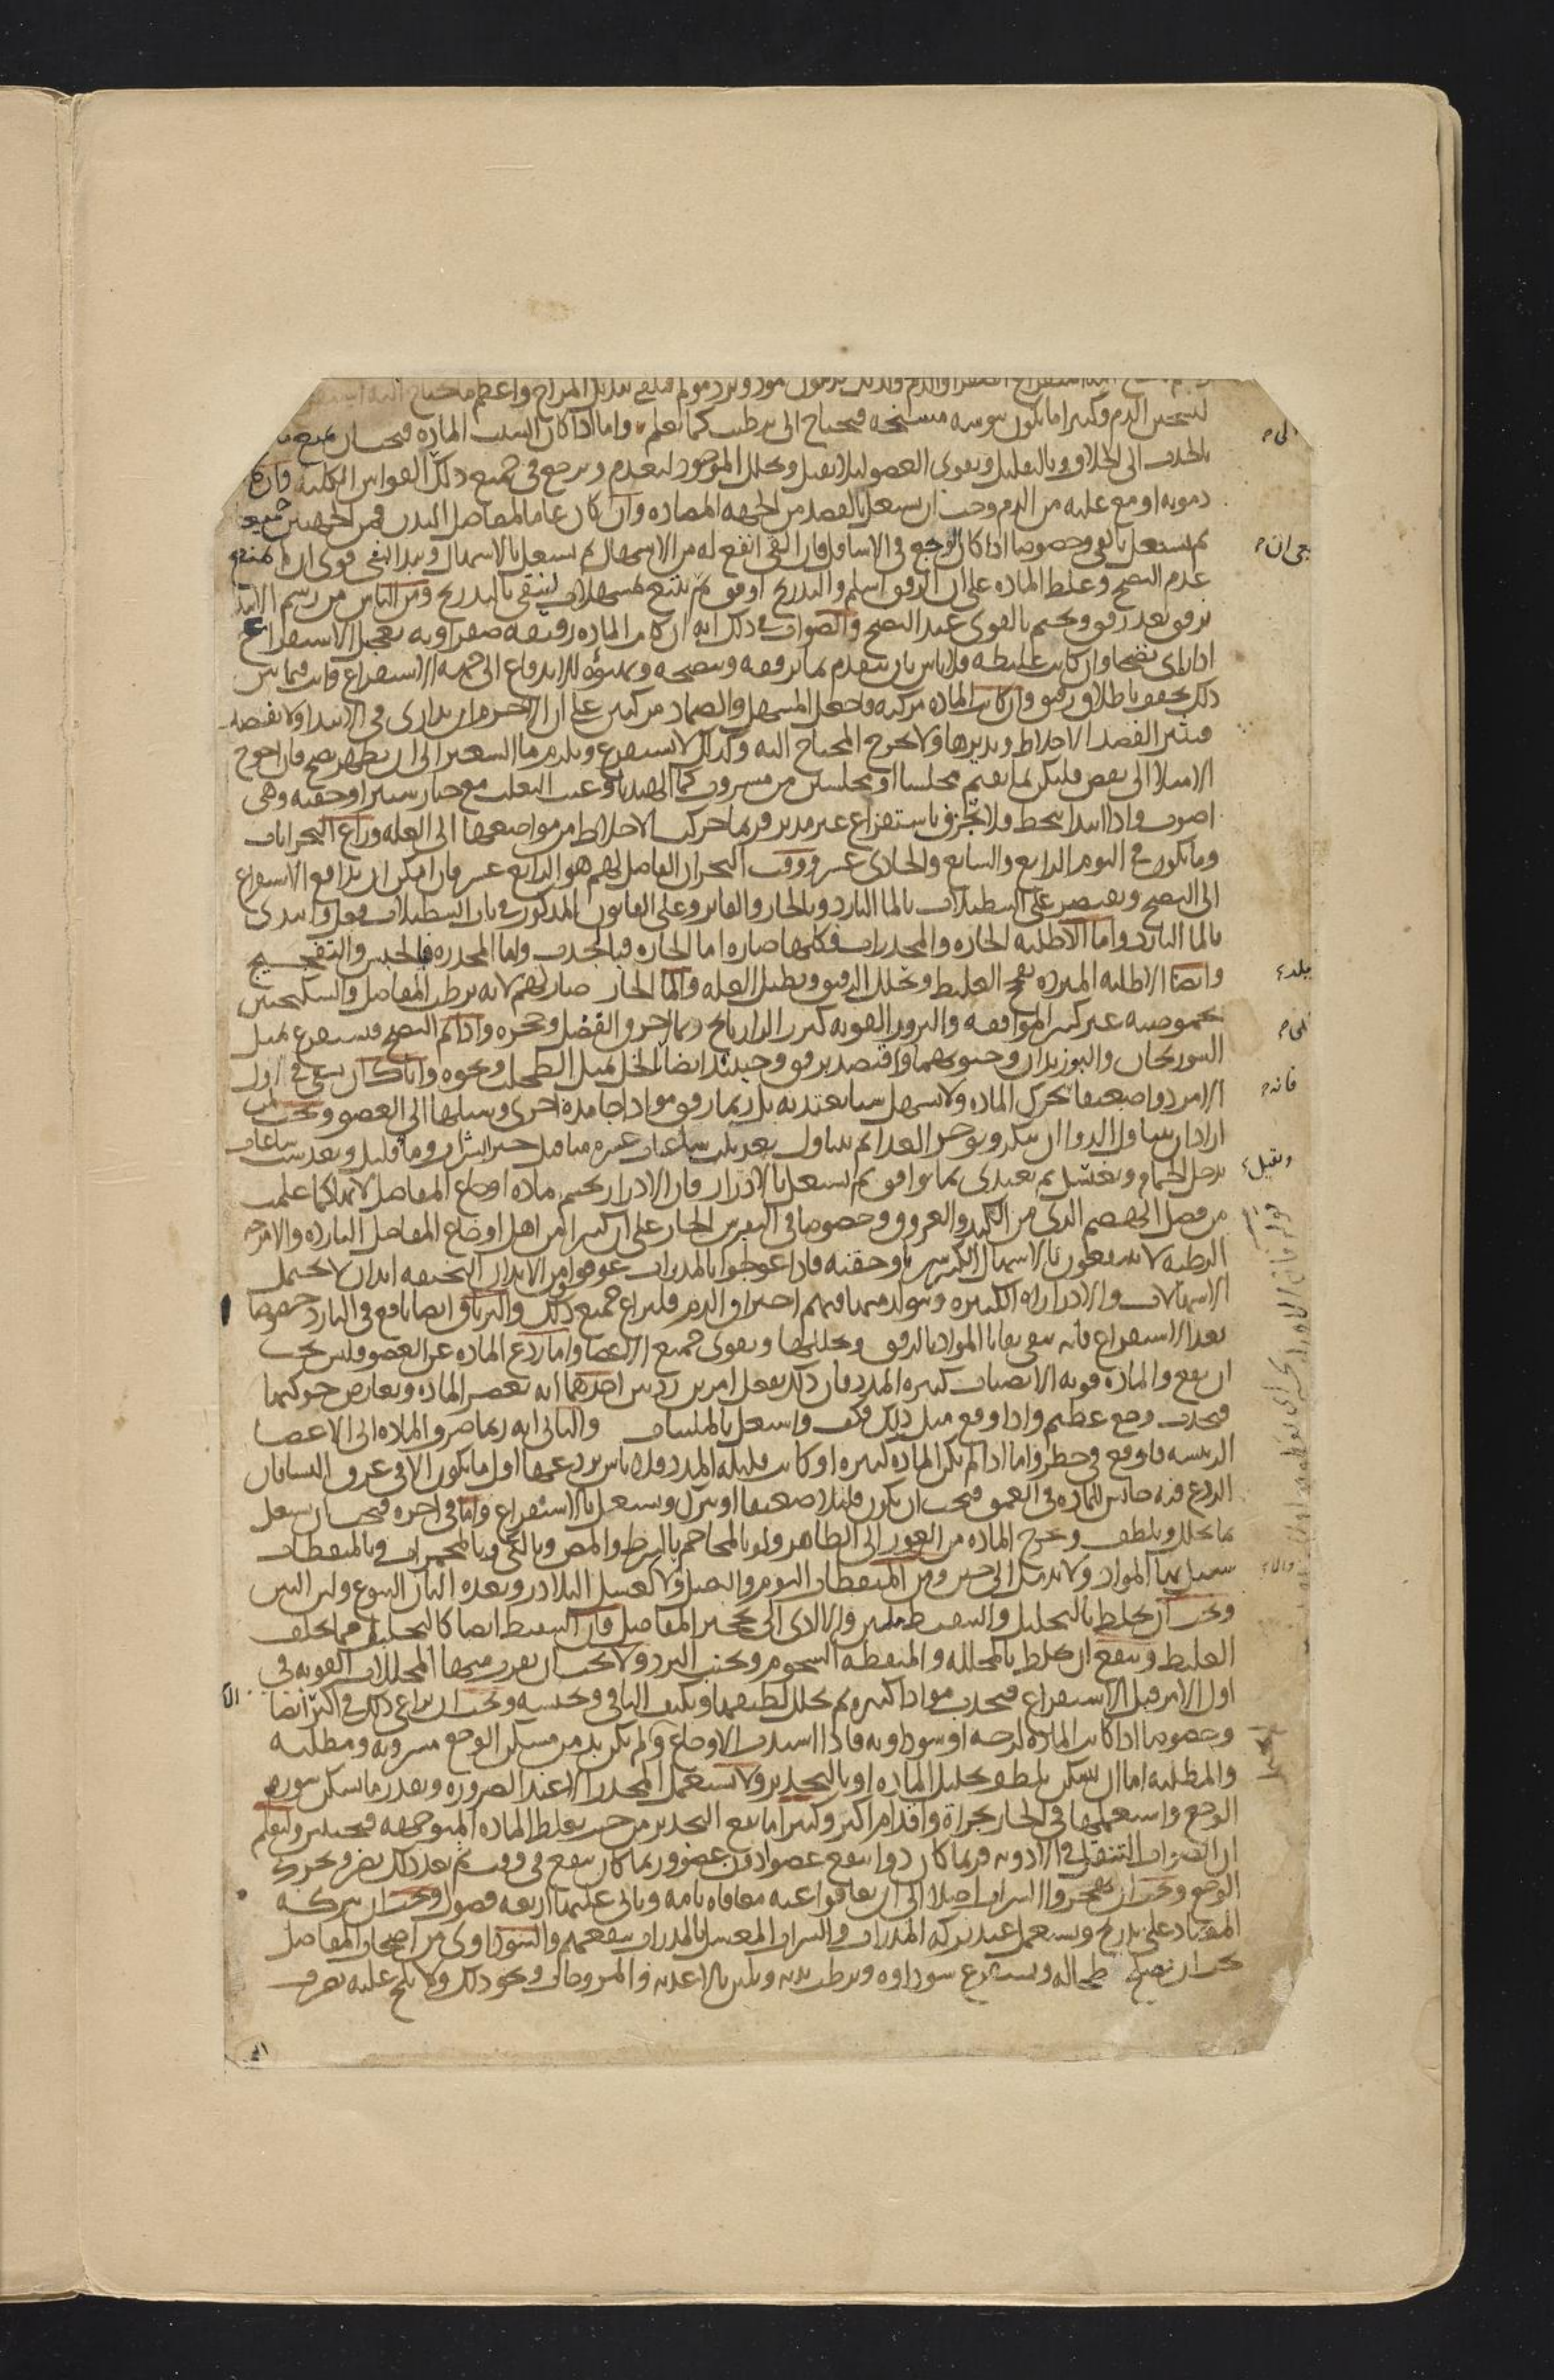 لتسخين الدم وكثيرا ما يكون يبوسة مسخنة فيحتاج الى ترطيب كما تعلم واما اذا كان السبب المادة فيجب ان يمنع ما
بالجذب الى الخلاف وبالتقليل ويقوى العضو لئلا يقبل ويحلل الموجود ليعدم ويرجع في جميع ذلك القوانين الكلية فان كا
دموية او مع غلبة من الدم وجب ان يشتغل بالفصد من الجهة المضادة وان كان عاما لمفاصل البدن فمن الجهتين جميعا
ثم يشتغل بالقي وخصوصا اذا كان الوجع في الاسافل فان القي انفع له من الاسهال ثم يشتغل بالاسهال ويبدا بشي قوى ان لم يمنع
عدم النضج وغلظ المادة على ان الرفق اسلم والتدريج اوفق ثم يتبع بمسهلات لينقى بالتدريج ومن الناس من رسم الابتدا
برفق بعد رفق ويختم بالقوى عند النضج والصواب في ذلك انه ان كانت المادة رقيقة صفراوية تعجل الاستفراغ
اذا راى نضجا وان كانت غليظة فلا باس بان يتقدم بما يرققه وينضجه ويهيؤه للاندفاع الى جهة الاستفراغ وانت فيما بين
ذلك تخفف باطلاق رقيق وان كانت المادة مركبة فاجعل المسهل والضماد مركبين على ان الاحزم ان يدارى في الابتدا ولا يفصد
فيثير الفصد الاخلاط ويديرها ولا يخرج المحتاج اليه وكذلك لا يستفرغ ويلزم ما الشعير الى ان يظهر نضج فان احوج
الامتلا الى نفض فليكن بما يقيم مجلسا او مجلسين من مشروب كما الهندبا وعنب الثعلب مع خيار شنبر او حقنة وهي
اصوب واذا ابتدا ينحط فلا تحرف باستفراغ غير مدبر فربما حركت الاخلاط من مواضعها الى العلة وراع البحرانات
وما يكون في اليوم الرابع والسابع والحادى عشر ووقت البحران الفاضل لهم هو الرابع عشر فان امكن ان يدافع الاستفراغ
الى النضج ويقتصر على التنطيلات بالما البارد وبالحار والفاتر وعلى القانون المذكور في باب التنطيلات فعل وابتدى
بالما البارد واما الاطلية الحارة والمخدرات فكلها ضارة اما الحارة فبالجذب واما المخدرة فبالحبس والتفجيج
وايضا الاطلية المبردة تفجج الغليظ وتحلل الرقيق وتطيل العلة والما الحار ضار لهم لانه يرطب المفاصل والسكنجبين
بحموضته غير كثير الموافقة والبزور القوية كبزر الرازيانج ربما احرق الفضل وحجره واذا تم النضج فيستفرغ بمثل
السورنجان والبوزيدان وحبوبهما واقتصد برفق وحينئذ ايضا لحل بمثل الطحلب ونحوه واياك ان تسقى في اول
الامر دوا ضعيفا يحرك المادة ولا يسهل شيا يعتد به بل ربما رقق مواد اجامدة اخرى وسيلها الى العضو ويجب لمن
اراد ان يتناول الدوا ان يبكر ويوخر الغدا ثم يتناول بعد ثلث ساعات عشرة مثاقيل خبز بشراب وما قليل وبعد ست ساعات
يدخل الحمام ويغتسل ثم يغتدى بما يوافق ثم يشتغل بالادرار فان الادرار يحسم مادة اوجاع المفاصل لانها كما علمت
من فضل الهضم الذى من الكبد والعروق وخصوصا في النقرس الحار على ان كثيرا من اهل اوجاع المفاصل الباردة والامزجة
الرطبة لا ينتفعون بالاسهال الكثير شربا وحقنة فاذا عولجوا بالمدرات عوفوا ومن الابدان النحيفة ابدان لا تحتمل
الاسهالات والادرارات الكثيرة ويتولد منهما فيهم احتراق الدم فليراع جميع ذلك والترياق ايضا نافع في البارد خصوصا
بعد الاستفراغ فانه يبقى بقايا المواد بالرفق ويحللها ويقوى جميع الاعضا واما ردع المادة عن العضو فليس يجب
ان يقع والمادة قوية الانصباب كثيرة المدد فان ذلك يفعل امرين رديين احدهما انه يعصر المادة ويعارض حركتها
فيحدث وجع عظيم واذا وقع مثل ذلك فكف واشتغل بالملينات والثاني انه ربما صرف المادة الى الاعضا
الرييسة فاوقع في خطر واما اذا لم يكن المادة كثيرة او كانت قليلة المدد فلا باس بردعها اول ما يكون الا في عرق النسا فان
الردع فيه حابس للمادة في العمق فيجب ان يكون قليلا ضعيفا او يترك ويشتغل بالاستفراغ واما في اخره فيجب ان يشتغل
بما يحلل ويلطف ويخرج المادة من الغور الى الظاهر ولو بالمحاجم بالشرط والمص وبالكى وبالمحمرات وبالمنفطات
تسيل بها المواد ولا يدمل الى حين ومن المنفطات الثوم والبصل ولا كعسل البلادر وبعده البان اليتوع ولبن التين
ويجب ان يخلط بالتحليل والتنفيط تليين والا ادى الى تحجير المفاصل فان التنفيط ايضا كالتحليل فيما يخلف
الغليظ وينفع ان يخلط بالمحللة والمنفطة الشحوم ويجنب البرد ولا يجب ان تقرب منها المحللات القوية في
اول الامر قبل الاستفراغ فيجذب مواد اكثيرة ثم يحلل لطيفها ويكثف الباقي ويحبسه ويجب ان يراعى ذلك في اكثر ايضا
وخصوصا اذا كانت المادة لزجة او سوداوية فاذا اشتدت الاوجاع ولم يكن بد من مسكن الوجع مشروبة ومطلية
والمطلية اما ان تسكن بلطف تحليل المادة او بالتخدير ولا تستعمل المخدرا الا عند الضرورة وبقدر ما يسكن سورة
الوجع واستعملها في الحار بجراة واقدام اكثر وكثيرا ما يقع التخدير من حيث يغلظ المادة المتوجهة فيحبس ولتعلم
ان الصواب التنقل في الادوية فربما كان دوا ينفع عضوا دون عضو وربما كان ينفع في وقت ثم بعد ذلك يضر ويحرك
الوجع ويجب ان يهجروا الشراب اصلا الى ان يعافوا عنه معافاة تامة وياتى عليها اربعة فصول ويجب ان يتركه
المعتاد على تدريج ويستعمل عند تركه المدرات والشراب المعسل بالمدرات ينفعهم والسوداوى من اصحاب المفاصل
يجب ان يصلح طحاله ويستفرغ سوداوه ويرطب بدنه ويلين بالاغذية والمروخات ونحو ذلك ولا يلح عليه بصرف